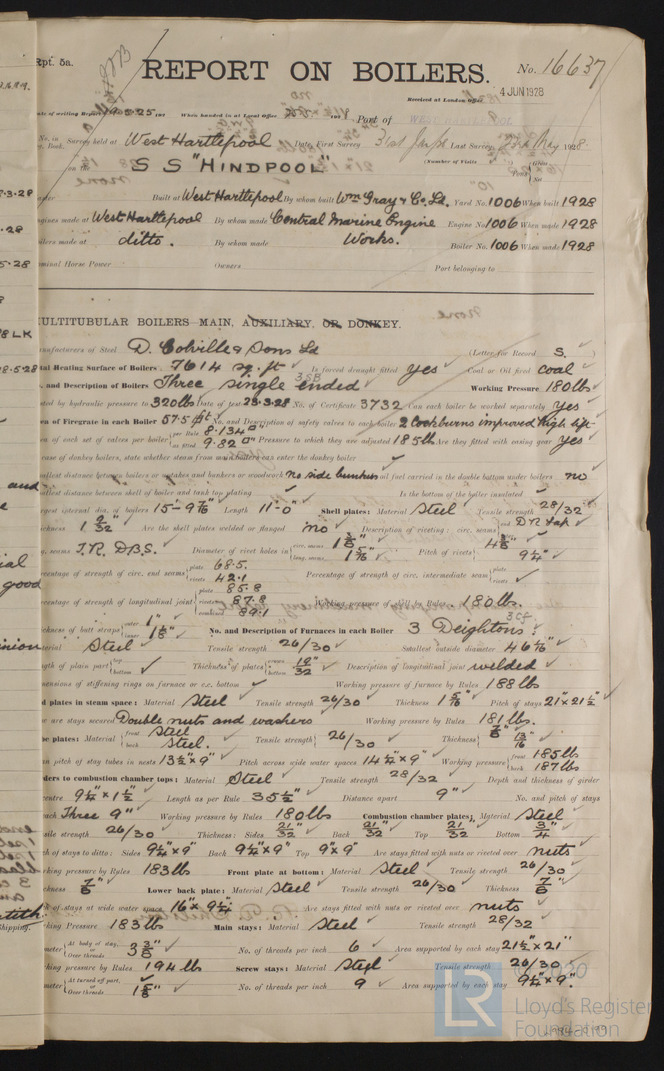 Rpt. 5a.
REPORT ON BOILERS.
No. 16637
Received at London Office 4 JUN 1928
Date of writing Report When handed in at Local Office Port of WEST HARTLEPOOL
No. in Survey held at West Hartlepool Date, First Survey 31st Last Survey May 1928
Book. (Number of Visits
S S "HINDPOOL"
Built at West Hartlepool By whom built Wm Gray & Co. Ld. Yard No. 1006 When built 1928
Engines made at West Hartlepool By whom made Central Marine Engine Engine No. 1006 When made 1928
Boilers made at ditto. By whom made Works. Boiler No. 1006 When made 1928
Nominal Horse Power Owners Port belonging to
MULTITUBULAR BOILERS MAIN, AUXILIARY, OR DONKEY.
Manufacturers of Steel D. Colville & Sons Ld (Letter for Record S. )
Total Heating Surface of Boilers 7614 sq. ft Is forced draught fitted yes Coal or Oil fired coal
No. and Description of Boilers Three single ended 3SB Working Pressure 180 lbs
Tested by hydraulic pressure to 320 lbs Date of test 23.3.28 No. of Certificate 3732 Can each boiler be worked separately yes
Area of Firegrate in each Boiler 57.5 ft No. and Description of safety valves to each boiler 2 Cockburns improved high lift
Area of each set of valves per boiler per Rule 8.134 as fitted 9.82 Pressure to which they are adjusted 185 lb Are they fitted with easing gear yes
In case of donkey boilers, state whether steam from main boilers can enter the donkey boiler
Smallest distance between boilers or uptakes and bunkers or woodwork no side bunkers oil fuel carried in the double bottom under boilers no
Smallest distance between shell of boiler and tank top plating Is the bottom of the boiler insulated
Largest internal dia. of boilers 15'-9 7/16" Length 11'-0" Shell plates: Material Steel Tensile strength 28/32
Thickness 1 9/32" Are the shell plates welded or flanged no Description of riveting: circ. seams end DR Lap
long. seams T.R. D.B.S. Diameter of rivet holes in circ. seams 1 3/8" long. seams 1 5/16" Pitch of rivets 4 3/8" 9 1/4"
Percentage of strength of circ. end seams plate 68.5 rivets 42.1 Percentage of strength of circ. intermediate seam plate rivets
Percentage of strength of longitudinal joint plate 85.8 rivets 87.8 combined 89.1 Working pressure of shell by Rules 180 lbs.
Thickness of butt straps outer 1" inner 1 1/8" No. and Description of Furnaces in each Boiler 3 Deightons 3 Cf
Material Steel Tensile strength 26/30 Smallest outside diameter 46 1/16"
Length of plain part top bottom Thickness of plates crown bottom 19/32" Description of longitudinal joint welded
Dimensions of stiffening rings on furnace or c.c. bottom Working pressure of furnace by Rules 188 lbs
End plates in steam space: Material Steel Tensile strength 26/30 Thickness 1 5/16" Pitch of stays 21" x 21 1/2"
How are stays secured Double nuts and washers Working pressure by Rules 181 lbs.
Tube plates: Material front Steel back Steel. Tensile strength 26/30 Thickness 7/8" 13/16"
Mean pitch of stay tubes in nests 13 1/2" x 9" Pitch across wide water spaces 14 1/2" x 9" Working pressure front 185 lbs back 187 lbs
Girders to combustion chamber tops: Material Steel Tensile strength 28/32 Depth and thickness of girder
at centre 9 1/4" x 1 1/2" Length as per Rule 35 1/2" Distance apart 9" No. and pitch of stays
in each Three 9" Working pressure by Rules 180 lbs Combustion chamber plates: Material Steel
Tensile strength 26/30 Thickness: Sides 21/32" Back 21/32" Top 21/32" Bottom 3/4"
Pitch of stays to ditto: Sides 9 1/4" x 9" Back 9 1/4" x 9" Top 9" x 9" Are stays fitted with nuts or riveted over nuts
Working pressure by Rules 183 lbs Front plate at bottom: Material Steel Tensile strength 26/30
Thickness 7/8" Lower back plate: Material Steel Tensile strength 26/30 Thickness 7/8"
Pitch of stays at wide water space 16" x 9 1/4" Are stays fitted with nuts or riveted over nuts
Working Pressure 183 lbs Main stays: Material Steel Tensile strength 28/32
Diameter At body of stay, or Over threads 3 3/8" No. of threads per inch 6 Area supported by each stay 21 1/2" x 21"
Working pressure by Rules 194 lbs Screw stays: Material Steel Tensile strength 26/30
Diameter At turned off part, or Over threads 1 5/8" No. of threads per inch 9 Area supported by each stay 9 1/4" x 9"
LR
© 2020
Lloyd's Register
Foundation